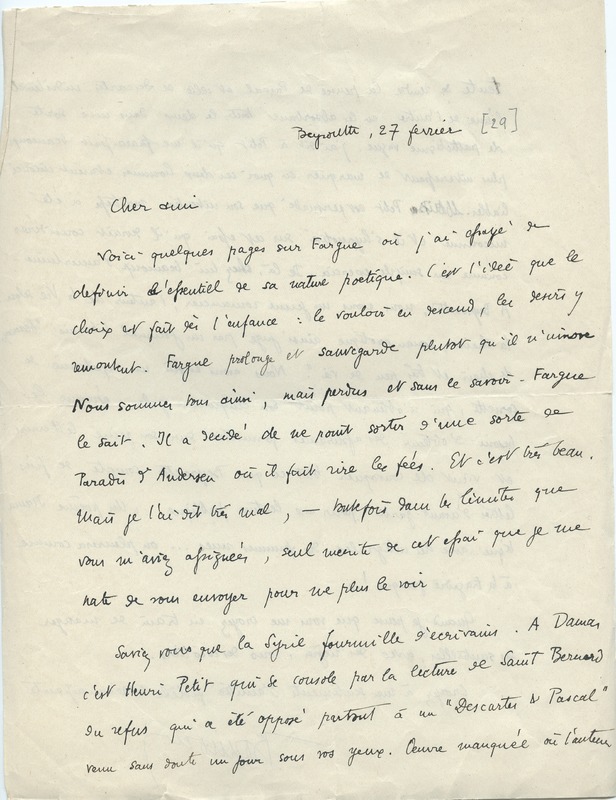 Beyrouth, 27 février [29]
Cher ami
Voici quelques pages sur Fargue où j'ai essayé de
definir l'essentiel de sa nature poetique. C'est l'idée que le
choix est fait dès l'enfance : le vouloir en descend, les desirs y
remontent. Fargue prolonge et sauvegarde plutot qu'il n'innove
Nous sommes tous ainsi, mais perdus et sans le savoir - Fargue
le sait. Il a decidé de ne point sortir d'une sorte de
Paradis d'Andersen où il fait rire les fées. Et c'est très beau.
Mais je l'ai dit très mal, — toutefois dans les limites que
vous m'aviez assignées, seul merite de cet essai que je me
hate de vous envoyer pour ne plus le voir
Savez vous que la Syrie fourmille d'écrivains. A Damas
c'est Henri Petit qui se console par la lecture de Saint Bernard
du refus qui a été opposé partout à un "Descartes & Pascal"
venu sans doute un jour sous vos yeux. Œuvre manquée où l'auteur